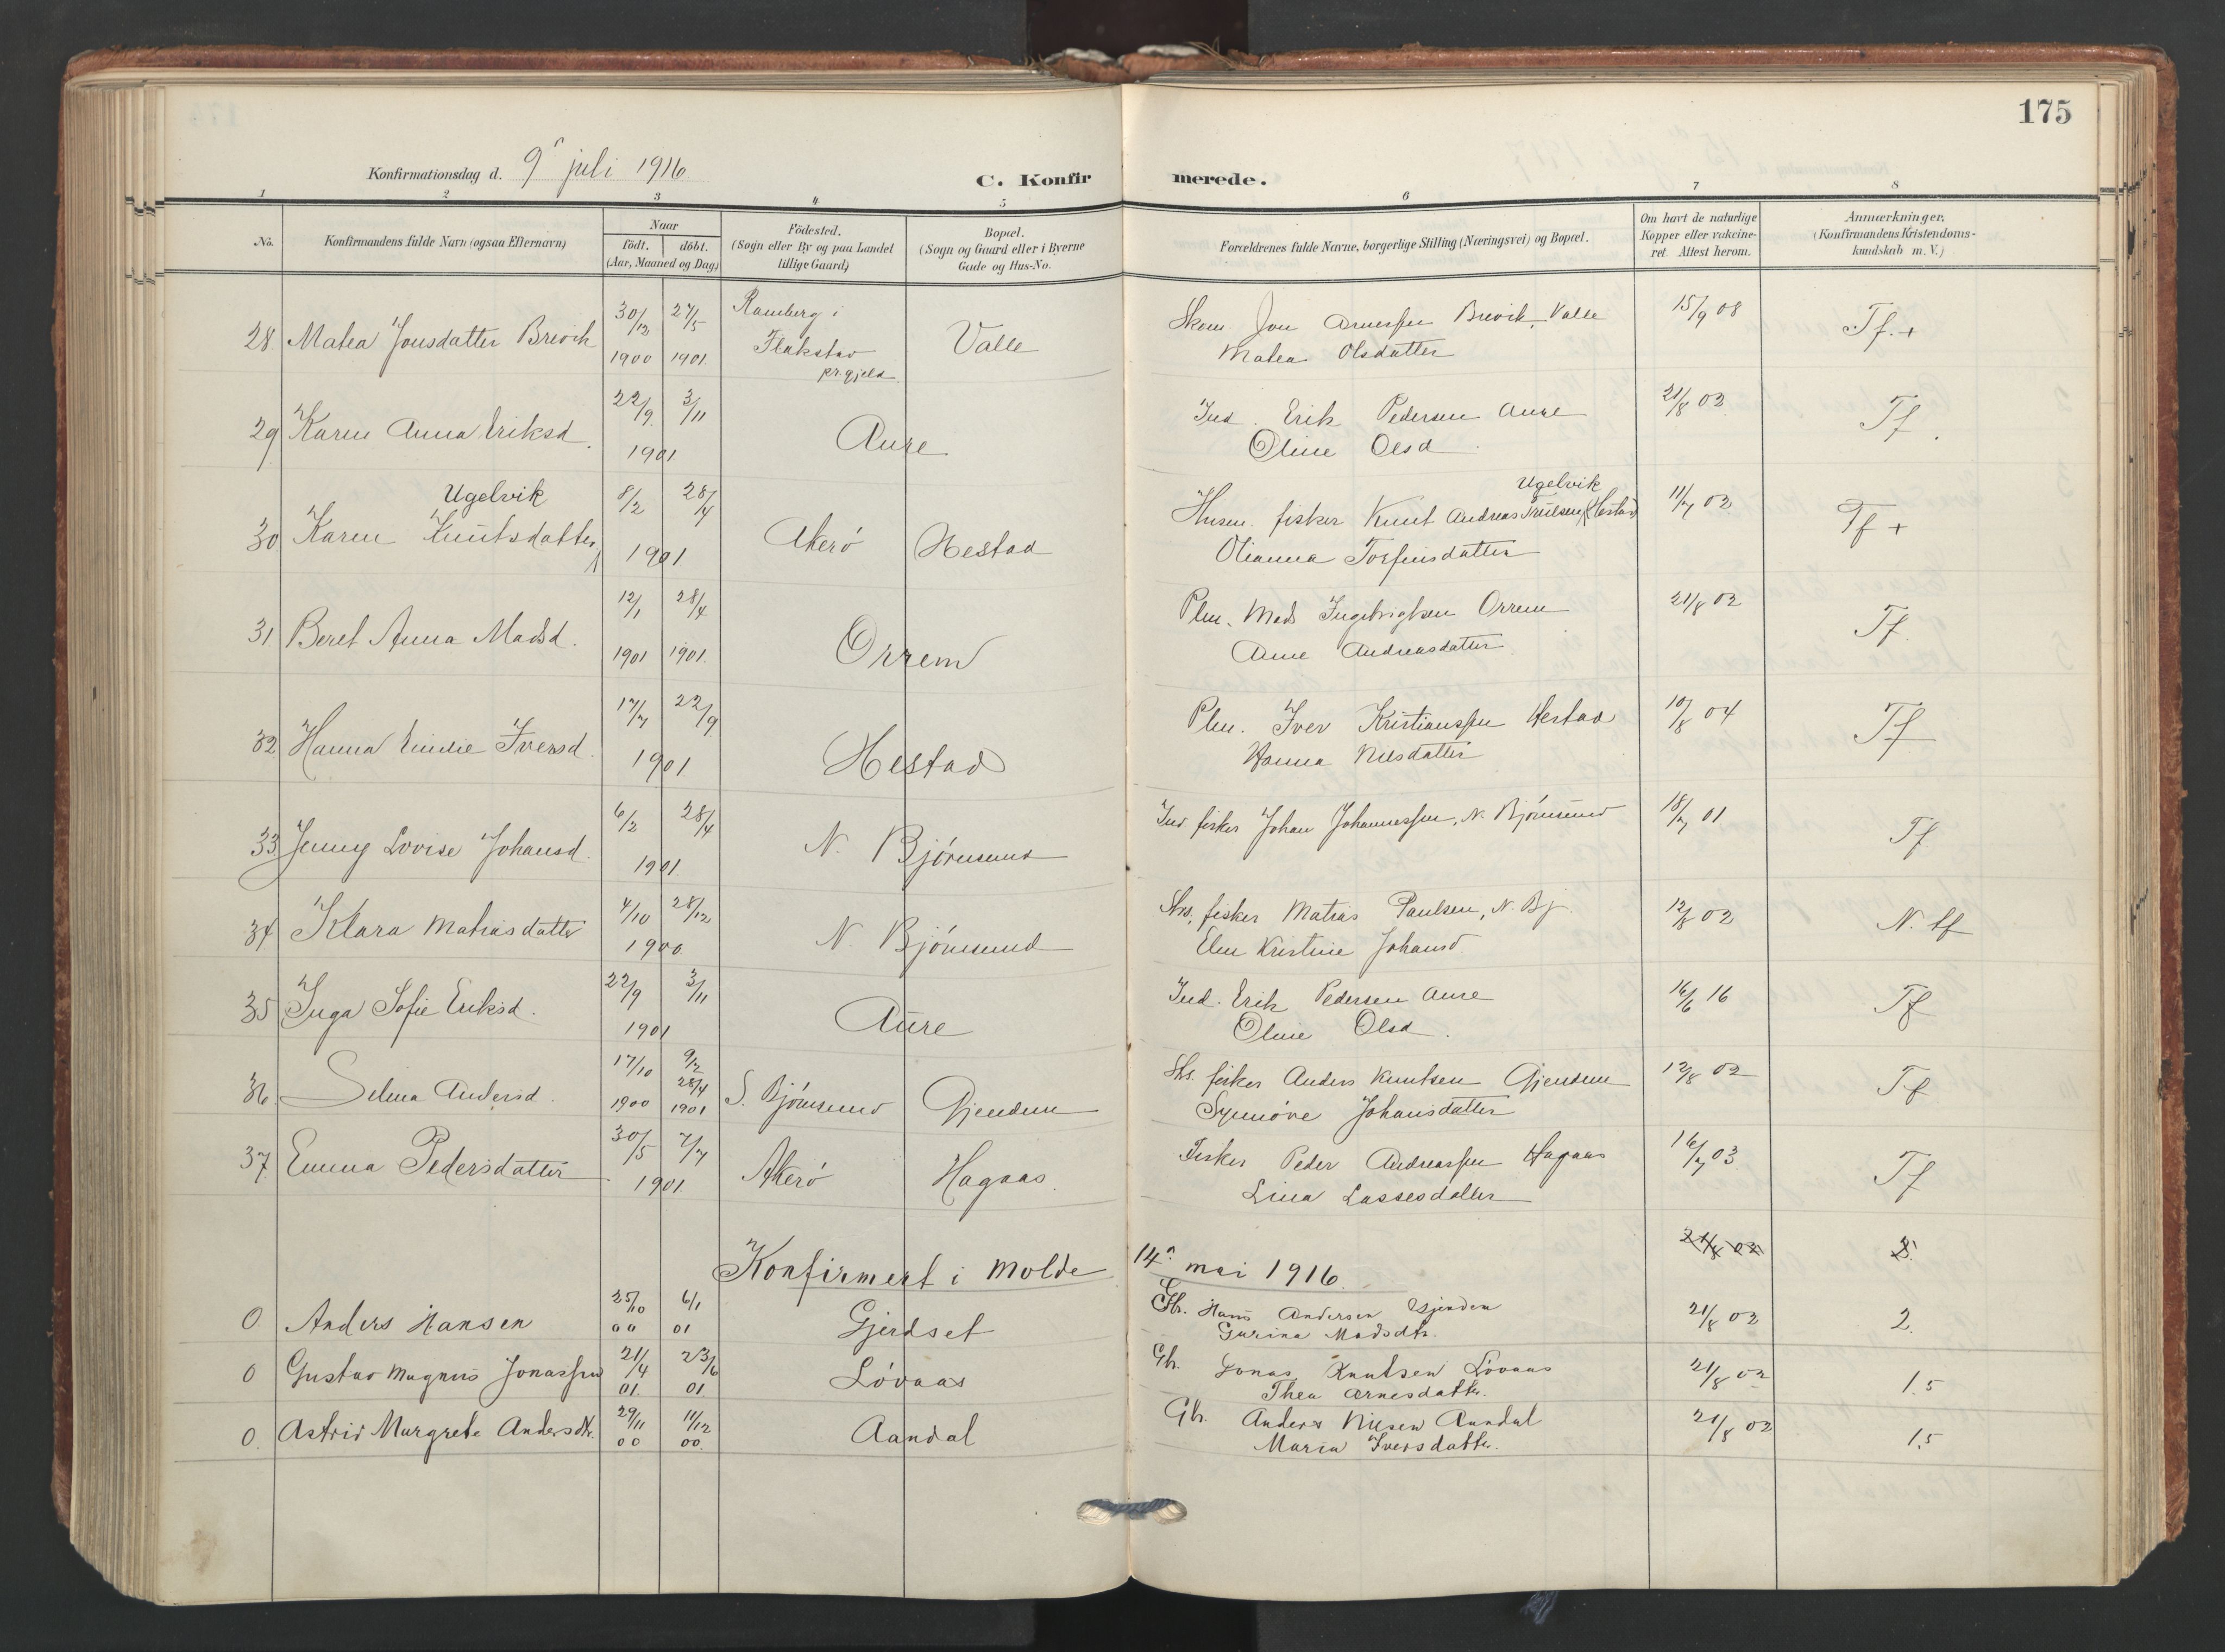 175
Konfirmationsdag d. 9n juli 1916
C. Konfirmerede.
1 2 3 4 5 6 7 8
No.
Konfirmandens fulde Navn (ogsaa Efternavn)
Naar
födt. döbt.
(Aar, Maaned og Dag)
Födested.
(Sogn eller By og paa Landet
tillige Gaard)
Bopæl.
(Sogn og Gaard eller i Byerne
Gade og Hus-No.
Forældrenes fulde Navne, borgerlige Stilling (Næringsvei) og Bopæl.
Om havt de naturlige
Kopper eller vakcine-
ret. Attest herom.
Anmærkninger.
(Konfirmandens Kristendoms-
kundskab m. V.)
28 Matea Jonsdatter Brevik 30/12 1900 27/5 1901 Ramberg i Flakstad pr.gjeld. Valle
Jon Arnessen Brevik, Valle 15/9 08 Tf. +
Matea Olsdatter
29 Karen Anna Eriksd. 22/9 3/11 1901 Aure
Ind. Erik Pedersen Aure 21/8 02 Tf.
Oline Olsd
Ugelvik
30 Karen Knutsdatter 8/2 28/4 1901 Akerö Hestad
Ugelvik
Husm. fisker Knut Andreas (Hestad) 11/7 02 Tf +
Olianna Torfinsdatter
31 Beret Anna Madsd. 12/1 1901 28/4 1901. Orrem
Plm. Mads Ingebrigtsen Orrem 21/8 02 Tf.
Anne Andreasdatter
32 Hanna Emilie Iversd. 17/7 22/9 1901 Hestad
Plm. Iver Kristianssen Hestad 10/8 04 Tf
Hanna Nilsdatter
33 Jenny Lovise Johansd. 6/2 28/4 1901 N. Björnsund
Ind fisker Johan Johannessen, N. Björnsund 18/7 01 Tf
34 Klara Matiasdatter 4/10 28/12 1900 N. Björnsund
Strs. fisker Matias Paulsen, N. Bj. 12/8 02 N. tf
Elen Kristine Johansd.
35 Inga Sofie Eriksd. 22/9 3/11 1901 Aure
Ind. Erik Pedersen Aure 16/6 16 Tf
Oline Olsd.
36. Selma Andersd. 17/10 1900 9/2 28/4 1901 S. Björnsund Gjendem
Sts. fisker Anders Knutsen Gjendem 12/8 02 Tf
Synnöve Johansdatter
37. Emma Pedersdatter 30/5 7/7 1901 Akerö Hagaas.
Fisker Peder Andreassen Hagaas 16/7 03 Tf
Lina Lassesdatter
21/8 02 2.
Konfirmert i Molde 14n mai 1916.
0 Anders Hansen 25/10 00 6/1 01 Gjerdset
Gbr. Hans Andersen Gjendem 21/8 02 2.
Gurina Madsdtr.
0 Gustav Magnus Jonassen 21/4 01 23/6 01 Lövaas
Gbr. Jonas Knutsen Lövaas 21/8 02 1.5
Thea Arnesdatter.
0. Astrid Margrete Andersdtr. 29/11 00 11/12 00. Aandal
Gbr. Anders Nilsen Aandal 21/8 02 1,5
Maria Iversdatter.